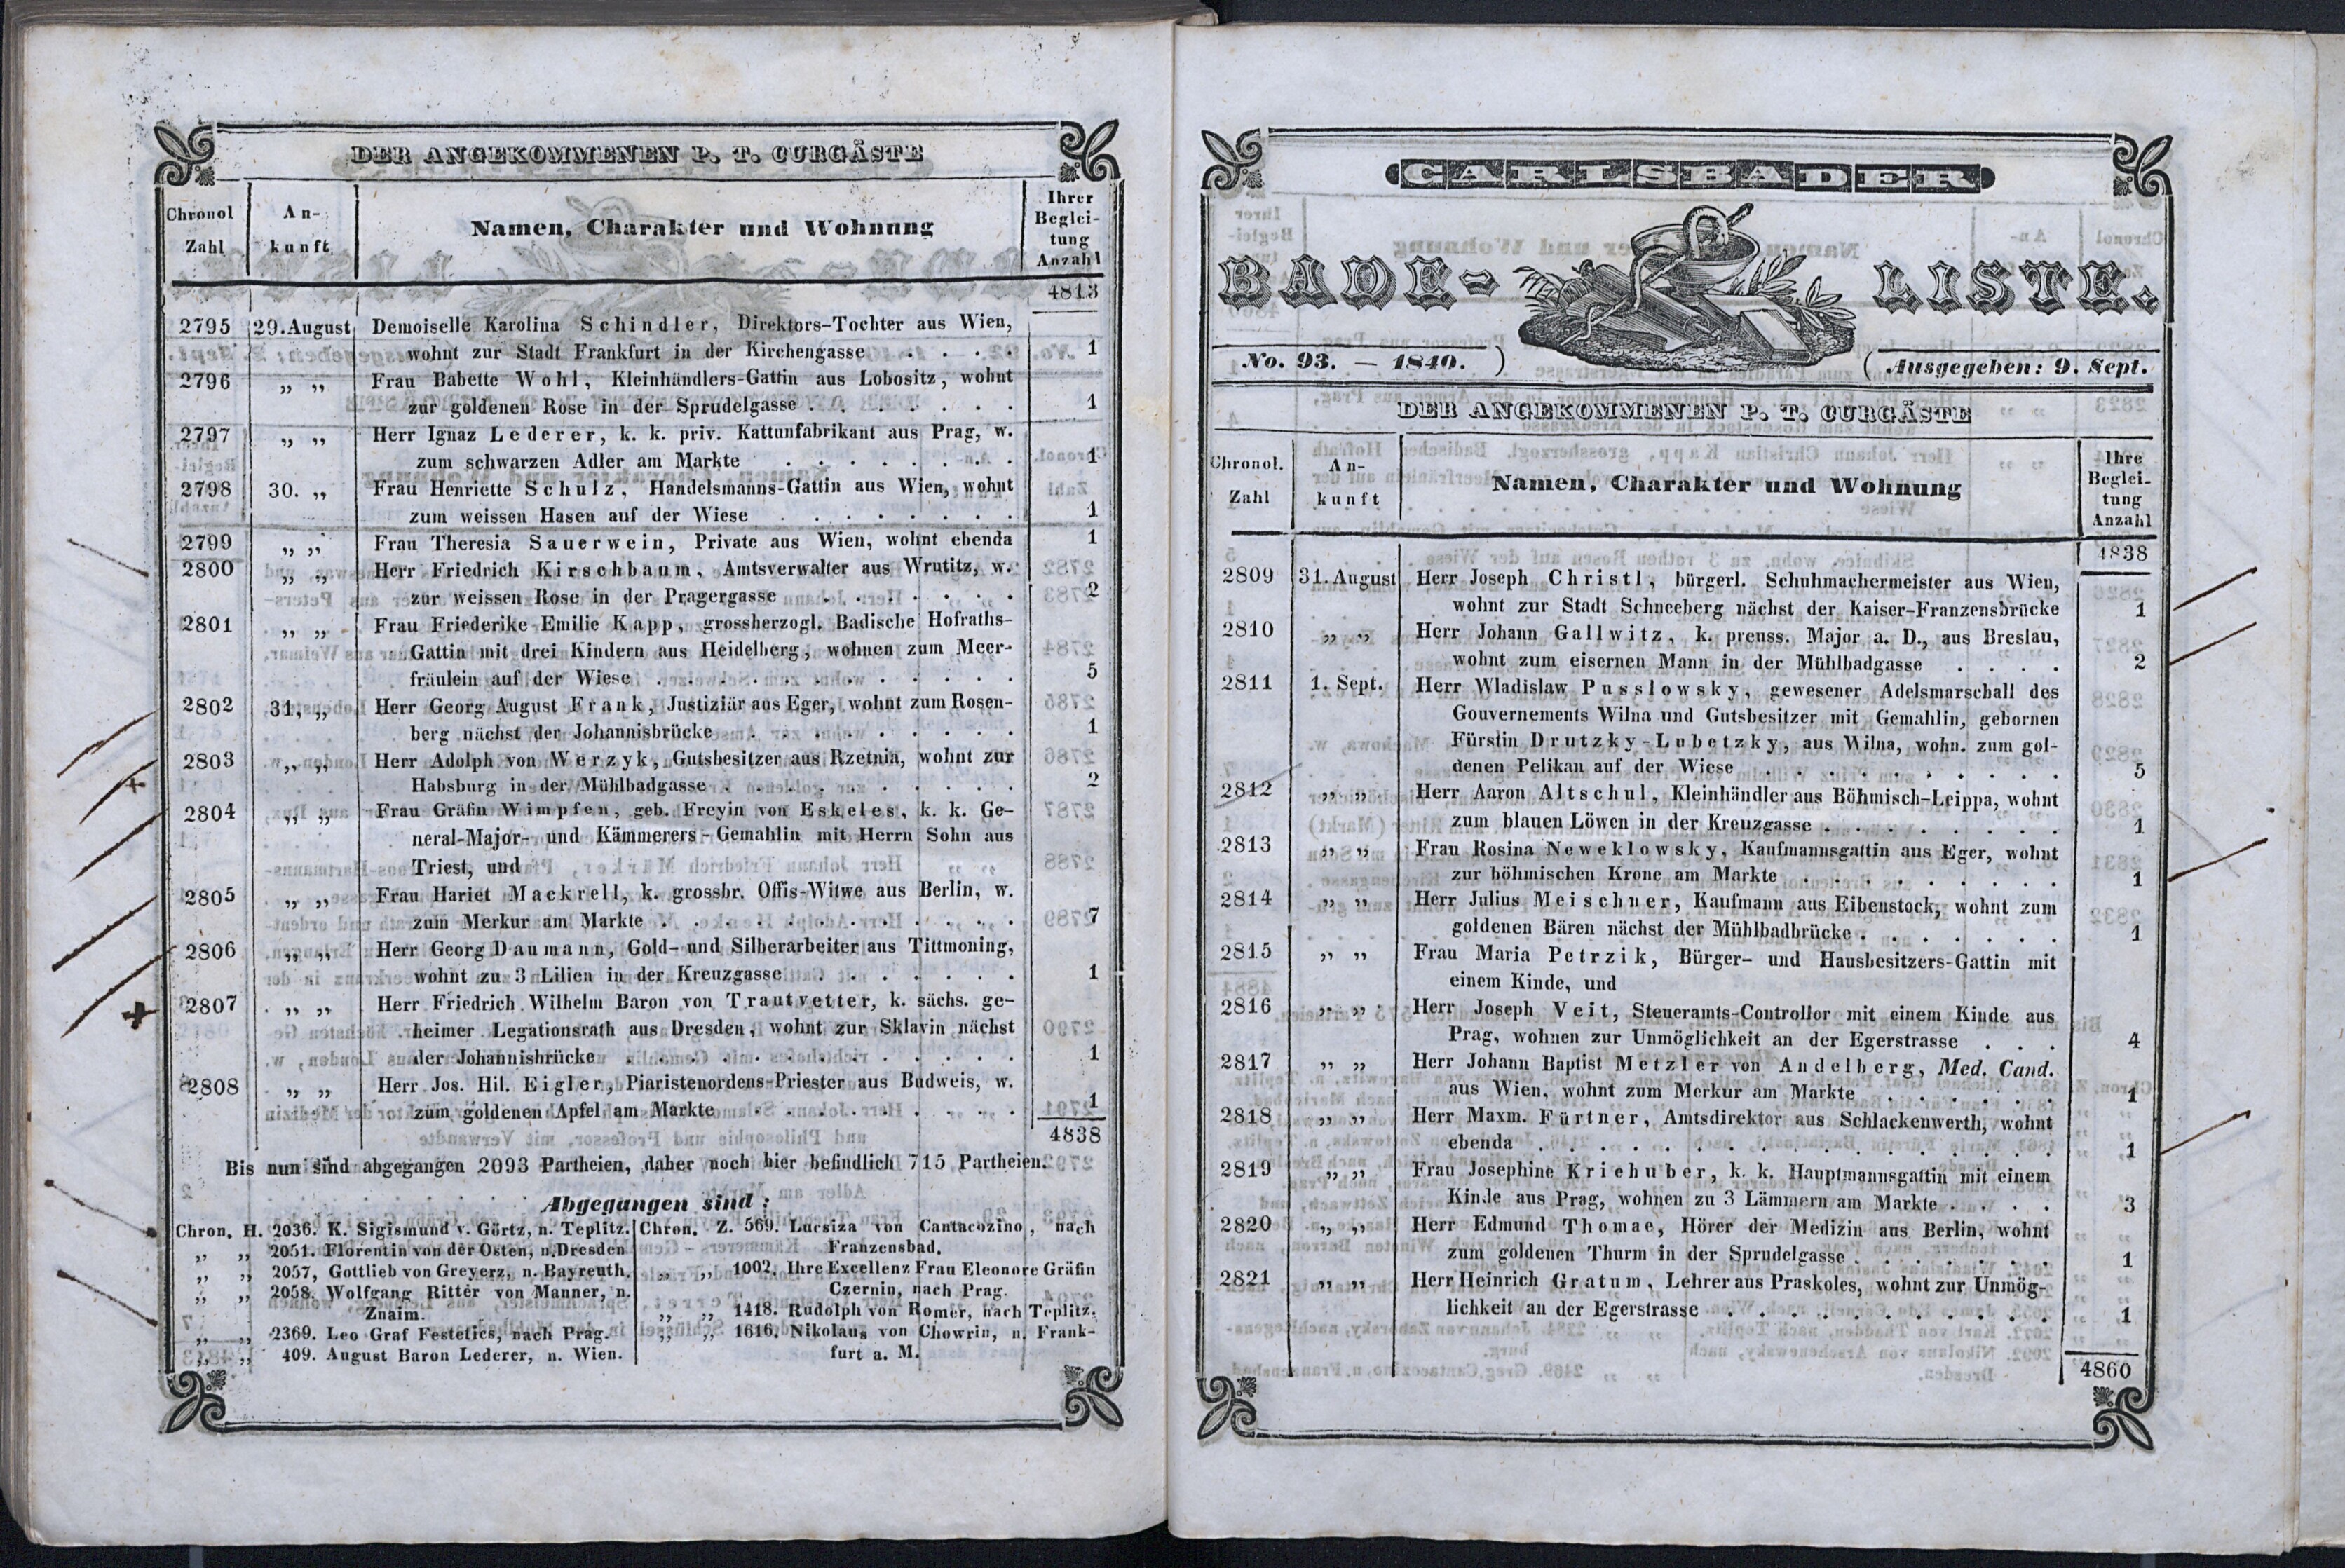 DER ANGEKOMMENEN P. T. CURGÄSTE
Chronol Zahl | An- kunft | Namen, Charakter und Wohnung | Ihrer Beglei- tung Anzahl
4813
2795 29. August Demoiselle Karolina Schindler, Direktors-Tochter aus Wien,
wohnt zur Stadt Frankfurt in der Kirchengasse . . . . 1
2796 „ „ Frau Babette Wohl, Kleinhändlers-Gattin aus Lobositz, wohnt
zur goldenen Rose in der Sprudelgasse . . . . . . . 1
2797 „ „ Herr Ignaz Lederer, k. k. priv. Kattunfabrikant aus Prag, w.
zum schwarzen Adler am Markte . . . . . . . . 1
2798 30. „ Frau Henriette Schulz, Handelsmanns-Gattin aus Wien, wohnt
zum weissen Hasen auf der Wiese . . . . . . . . 1
2799 „ „ Frau Theresia Sauerwein, Private aus Wien, wohnt ebenda 1
2800 „ „ Herr Friedrich Kirschbaum, Amtsverwalter aus Wrutitz, w.
zur weissen Rose in der Pragergasse . . . . . . . 2
2801 „ „ Frau Friederike Emilie Kapp, grossherzogl. Badische Hofraths-
Gattin mit drei Kindern aus Heidelberg, wohnen zum Meer-
fräulein auf der Wiese . . . . . . . . . . . 5
2802 31, „ Herr Georg August Frank, Justiziär aus Eger, wohnt zum Rosen-
berg nächst der Johannisbrücke . . . . . . . . . 1
2803 „ „ Herr Adolph von Werzyk, Gutsbesitzer aus Rzetnia, wohnt zur
Habsburg in der Mühlbadgasse . . . . . . . . . . 2
2804 „ „ Frau Gräfin Wimpfen, geb. Freyin von Eskeles, k. k. Ge-
neral-Major- und Kämmerers-Gemahlin mit Herrn Sohn aus
Triest, und
2805 „ „ Frau Hariet Mackrell, k. grossbr. Offis-Witwe aus Berlin, w.
zum Merkur am Markte . . . . . . . . . . . 7
2806 „ „ Herr Georg Daumann, Gold- und Silberarbeiter aus Tittmoning,
wohnt zu 3 Lilien in der Kreuzgasse . . . . . . 1
2807 „ „ Herr Friedrich Wilhelm Baron von Trautvetter, k. sächs. ge-
heimer Legationsrath aus Dresden, wohnt zur Sklavin nächst
der Johannisbrücke . . . . . . . . . . . . 1
2808 „ „ Herr Jos. Hil. Eigler, Piaristenordens-Priester aus Budweis, w.
zum goldenen Apfel am Markte . . . . . . . . . 1
4838
Bis nun sind abgegangen 2093 Partheien, daher noch hier befindlich 715 Partheien.
Abgegangen sind:
Chron. H. 2036. K. Sigismund v. Görtz, n. Teplitz.
„ „ 2051. Florentin von der Osten, n. Dresden
„ „ 2057, Gottlieb von Greyerz, n. Bayreuth.
„ „ 2058. Wolfgang Ritter von Manner, n.
Znaim.
„ „ 2369. Leo Graf Festetics, nach Prag.
„ „ 409. August Baron Lederer, n. Wien.
Chron. Z. 569. Lucsiza von Cantacozino, nach
Franzensbad.
„ „ 1002. Ihre Excellenz Frau Eleonore Gräfin
Czernin, nach Prag.
„ „ 1418. Rudolph von Romer, nach Teplitz.
„ „ 1616. Nikolaus von Chowrin, n. Frank-
furt a. M.
CARLSBADER
BADE-LISTE.
No. 93. — 1840. ) ( Ausgegeben: 9. Sept.
DER ANGEKOMMENEN P. T. CURGÄSTE
Chronol. Zahl | An- kunft | Namen, Charakter und Wohnung | Ihre Beglei- tung Anzahl
4838
2809 31. August Herr Joseph Christl, bürgerl. Schuhmachermeister aus Wien,
wohnt zur Stadt Schneeberg nächst der Kaiser-Franzensbrücke 1
2810 „ „ Herr Johann Gallwitz, k. preuss. Major a. D., aus Breslau,
wohnt zum eisernen Mann in der Mühlbadgasse . . . . 2
2811 1. Sept. Herr Wladislaw Pusslowsky, gewesener Adelsmarschall des
Gouvernements Wilna und Gutsbesitzer mit Gemahlin, gebornen
Fürstin Drutzky-Lubetzky, aus Wilna, wohn. zum gol-
denen Pelikan auf der Wiese . . . . . . . . . . 5
2812 „ „ Herr Aaron Altschul, Kleinhändler aus Böhmisch-Leippa, wohnt
zum blauen Löwen in der Kreuzgasse . . . . . . . . 1
2813 „ „ Frau Rosina Neweklowsky, Kaufmannsgattin aus Eger, wohnt
zur böhmischen Krone am Markte . . . . . . . . . 1
2814 „ „ Herr Julius Meischner, Kaufmann aus Eibenstock, wohnt zum
goldenen Bären nächst der Mühlbadbrücke . . . . . . . 1
2815 „ „ Frau Maria Petrzik, Bürger- und Hausbesitzers-Gattin mit
einem Kinde, und
2816 „ „ Herr Joseph Veit, Steueramts-Controllor mit einem Kinde aus
Prag, wohnen zur Unmöglichkeit an der Egerstrasse . . . 4
2817 „ „ Herr Johann Baptist Metzler von Andelberg, Med. Cand.
aus Wien, wohnt zum Merkur am Markte . . . . . . 1
2818 „ „ Herr Maxm. Fürtner, Amtsdirektor aus Schlackenwerth, wohnt
ebenda . . . . . . . . . . . . . . . . 1
2819 „ „ Frau Josephine Kriehuber, k. k. Hauptmannsgattin mit einem
Kinde aus Prag, wohnen zu 3 Lämmern am Markte . . . . 3
2820 „ „ Herr Edmund Thomae, Hörer der Medizin aus Berlin, wohnt
zum goldenen Thurm in der Sprudelgasse . . . . . . . 1
2821 „ „ Herr Heinrich Gratum, Lehrer aus Praskoles, wohnt zur Unmög-
lichkeit an der Egerstrasse . . . . . . . . . . . 1
4860